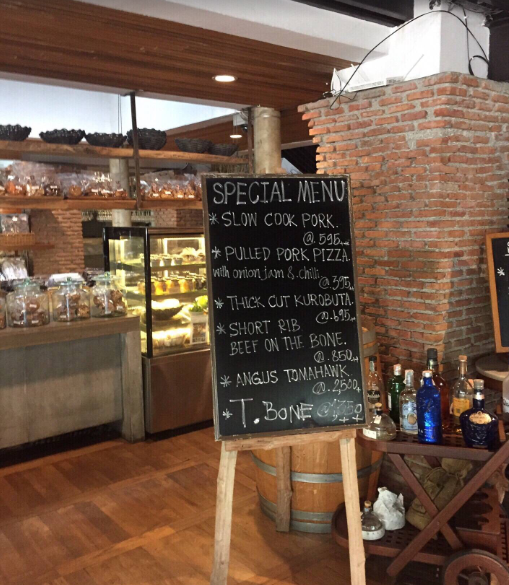 SPECIAL MENU
* SLOW COOK PORK.
@.595.-
* PULLED PORK PIZZA.
with onion jam & chili
@.395.-
* THICK CUT KUROBUTA.
@.695.-
* SHORT RIB
BEEF ON THE BONE.
@.850.-
* ANGUS TOMAHAWK.
@.2,500.-
* T. BONE